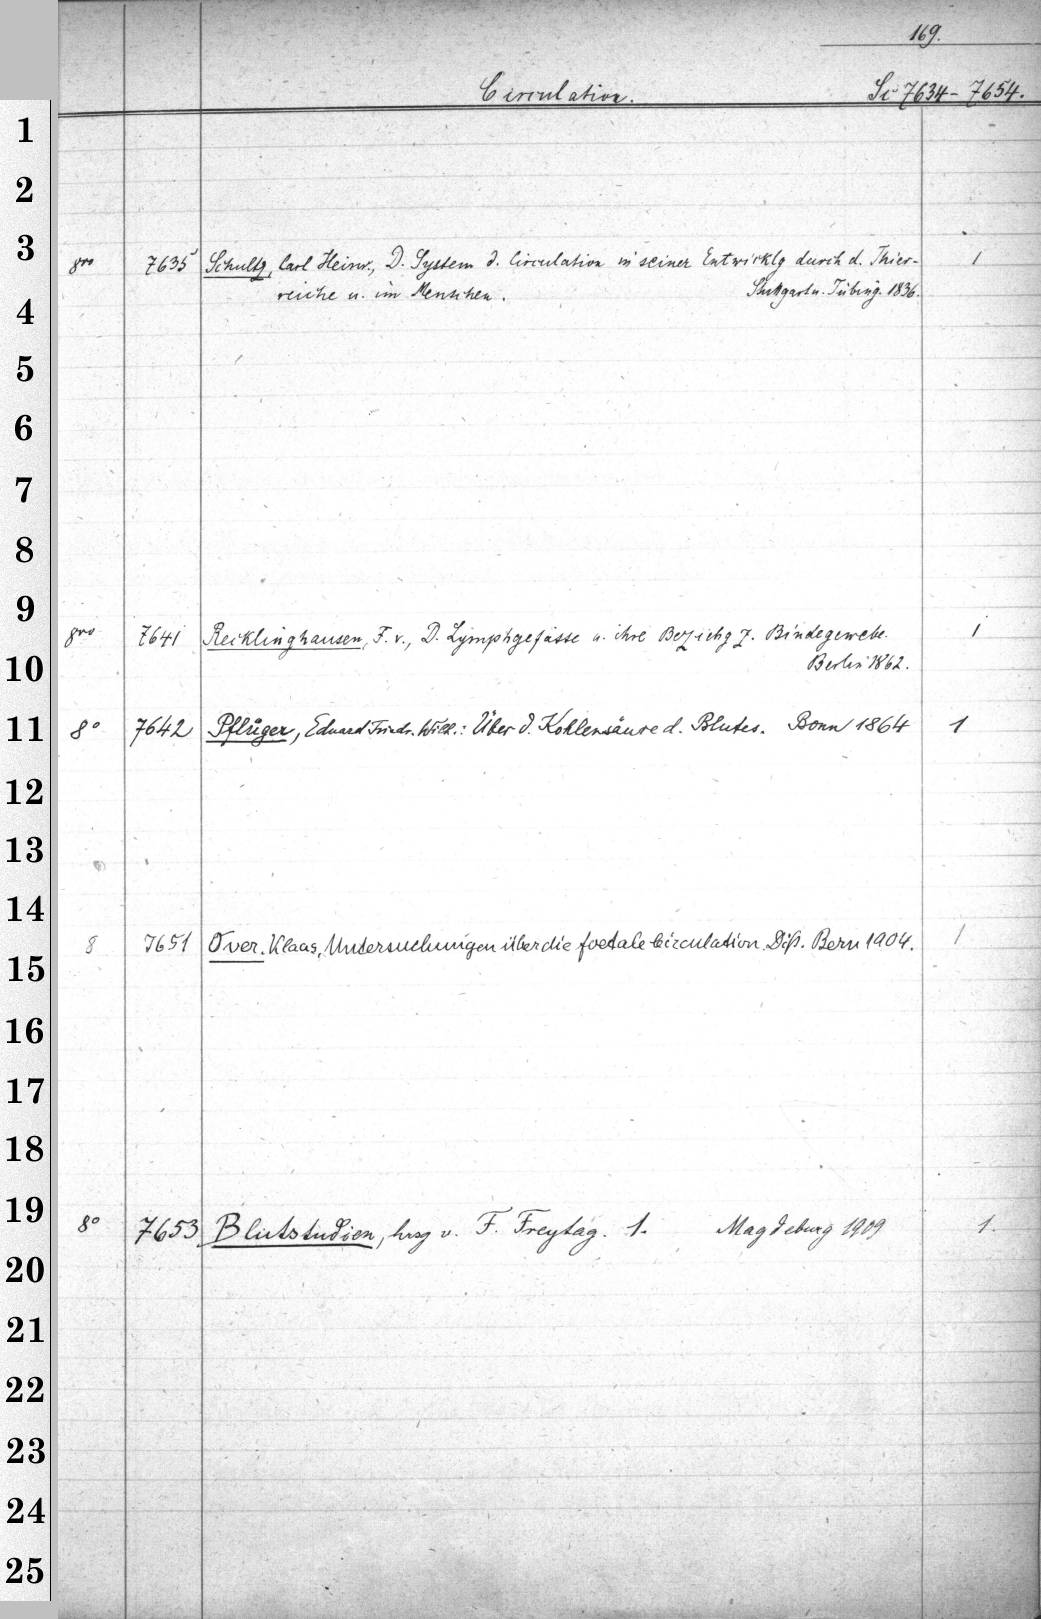 169.
Circulation. Sc 7634-7654.
1
2
3
8vo 7635 Schultz, Carl Heinr., D. System d. Circulation in seiner Entwicklg durch d. Thier- 1
reiche u. im Menschen. Stuttgart u. Tübing. 1836.
4
5
6
7
8
9
8vo 7641 Recklinghausen, F. v., D. Lymphgefässe u. ihre Beziehg z. Bindegewebe. 1
10 Berlin 1862.
11 8° 7642 Pflüger, Eduard Friedr. Wilh.: Über d. Kohlensäure d. Blutes. Bonn 1864 1
12
13
14
8 7651 Over, Klaas, Untersuchungen über die foetale Circulation. Diß. Bern 1904. 1
15
16
17
18
19
8° 7653 Blutstudien, hrsg v. F. Freytag. 1. Magdeburg 1909 1.
20
21
22
23
24
25